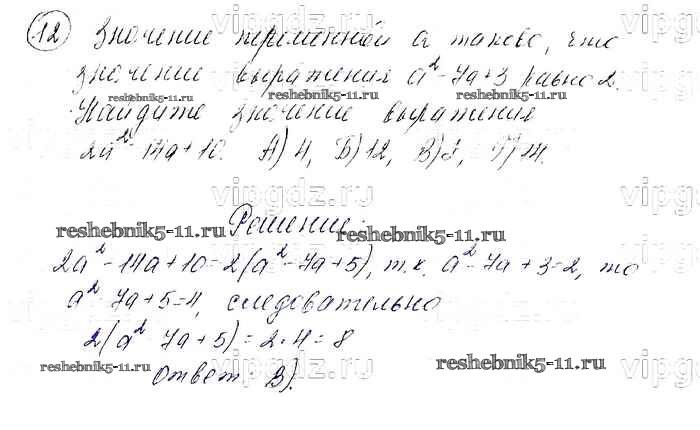 12 Значение переменной а таково, что
значение выражения a² - 7a + 3 равно 2.
Найдите значение выражения
2a² - 14a + 10. А) 4, Б) 12, В) 8, Г) 14.
Решение.
2a² - 14a + 10 = 2(a² - 7a + 5), т.к. a² - 7a + 3 = 2, то
a² - 7a + 5 = 4, следовательно
2(a² - 7a + 5) = 2·4 = 8
Ответ В).
reshebnik5-11.ru
reshebnik5-11.ru
reshebnik5-11.ru
reshebnik5-11.ru
reshebnik5-11.ru
reshebnik5-11.ru
vipgdz.ru
vipgdz.ru
vipgdz.ru